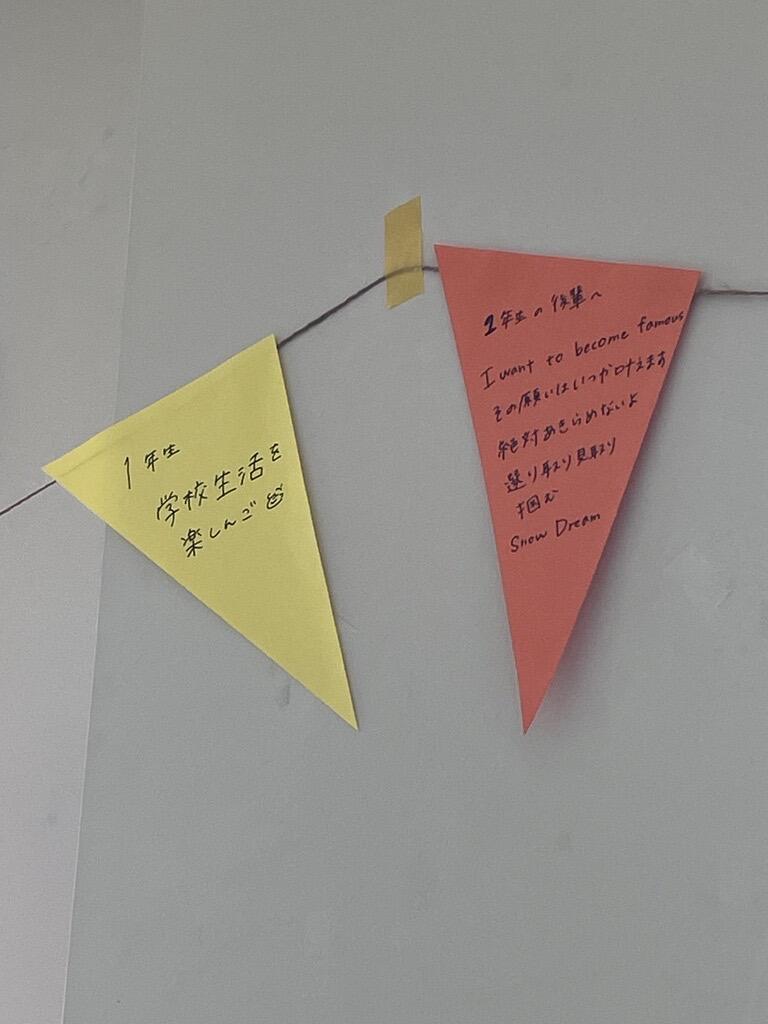 1年生
学校生活を
楽しんご
2年生の後輩へ
I want to become famous
その願いはいつか叶えます
絶対あきらめないよ
選り取り見取り
掴む
Snow Dream